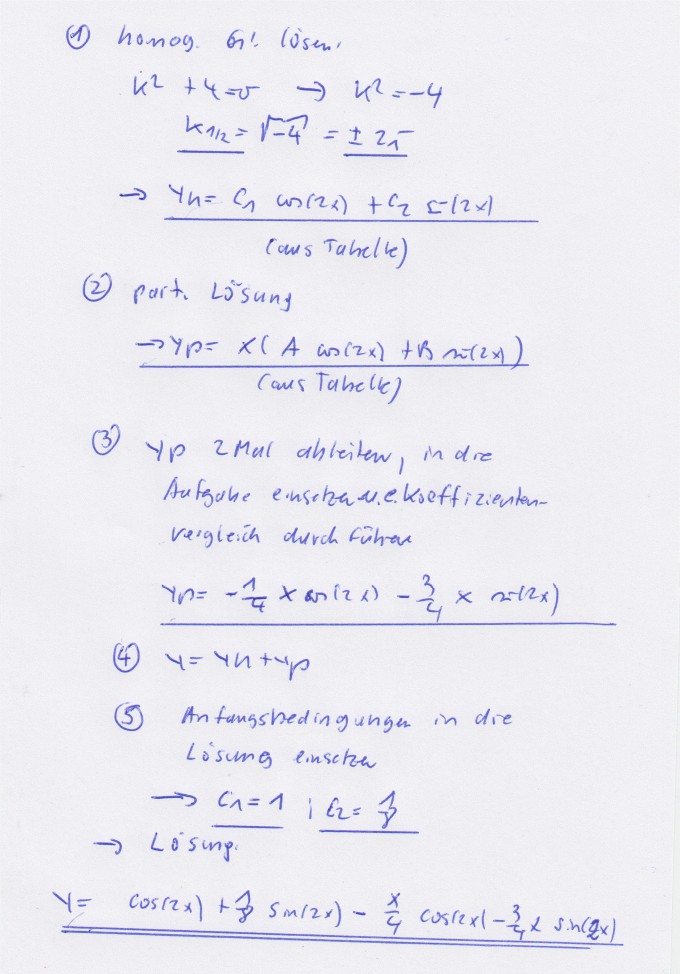 ① homog. Gl. lösen:
k² + 4 = 0 → k² = -4
k1/2 = √-4 = ± 2i
→ yh = C1 cos(2x) + C2 sin(2x)
(aus Tabelle)
② part. Lösung
→ yp = x( A cos(2x) + B sin(2x) )
(aus Tabelle)
③ yp 2Mal ableiten, in die
Aufgabe einsetzen u. e. Koeffizienten-
vergleich durchführen
yp = -1/4 x cos(2x) - 3/4 x sin(2x)
④ y = yh + yp
⑤ Anfangsbedingungen in die
Lösung einsetzen
→ C1 = 1 ; C2 = 1/8
→ Lösung:
y = cos(2x) + 1/8 sin(2x) - x/4 cos(2x) - 3/4 x sin(2x)